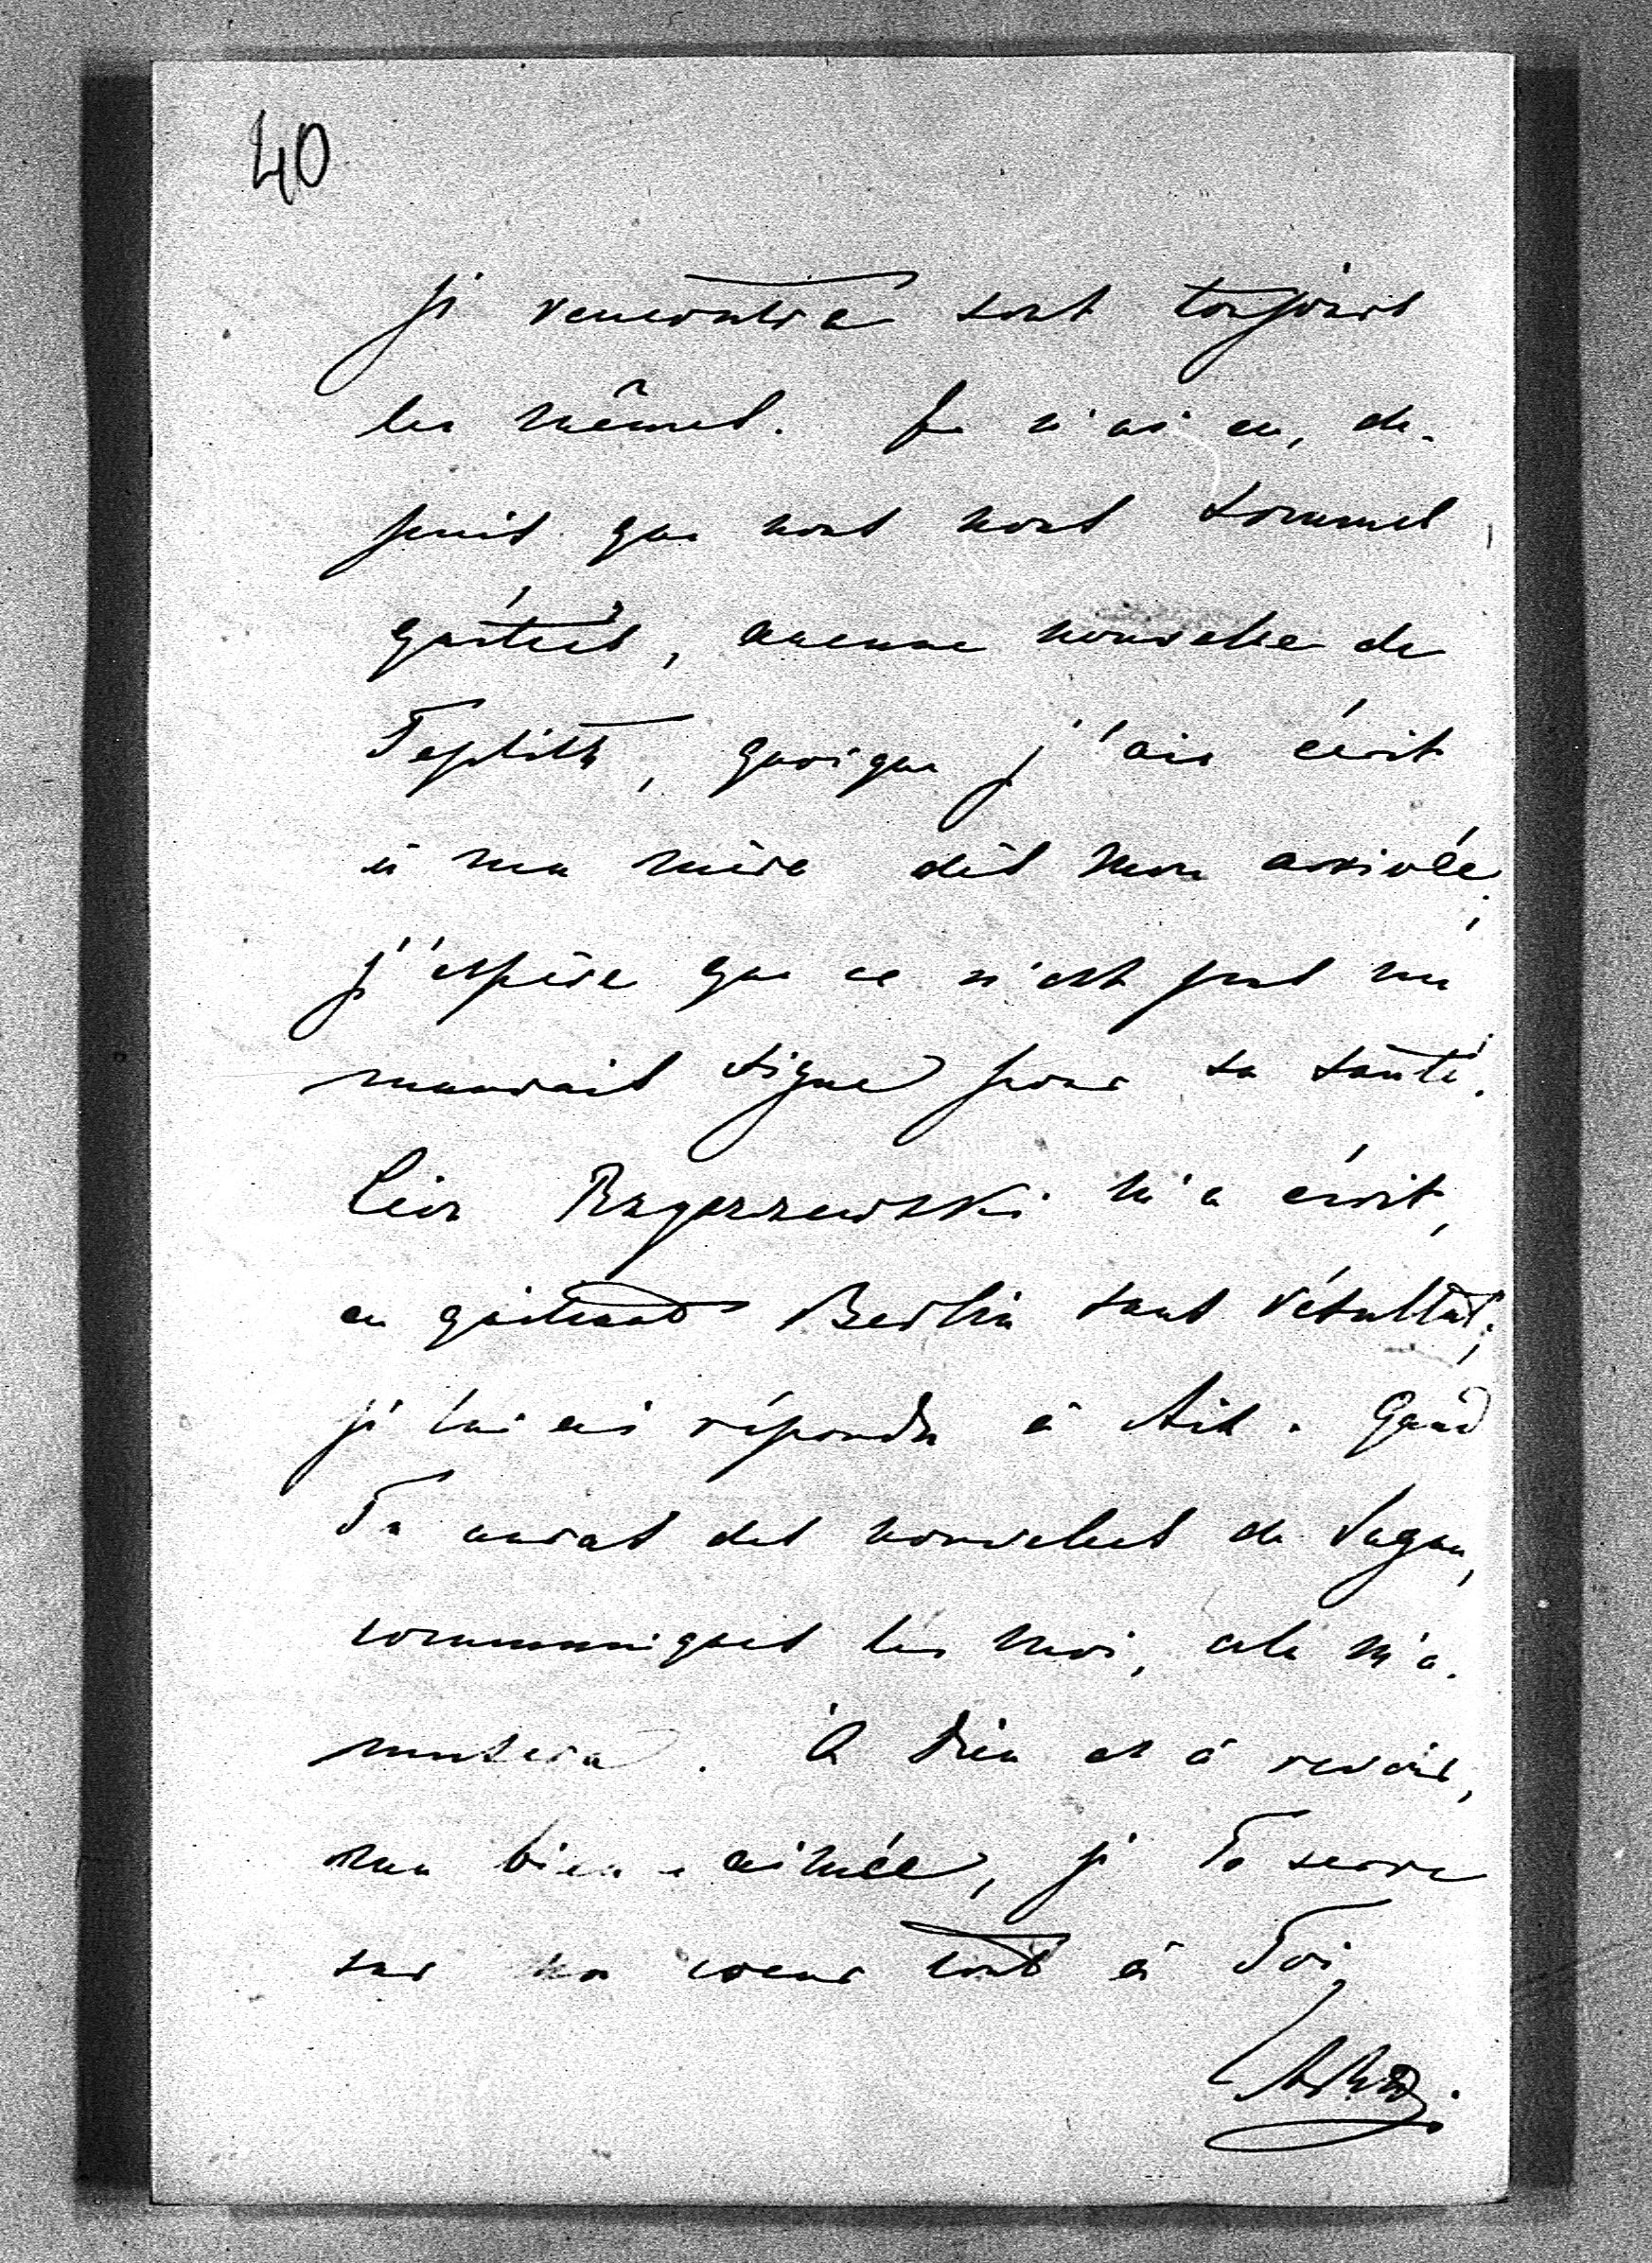 40
je rencontre sont toujours
les mêmes. Je n'ai eu, de-
puis que nous nous sommes
quittés, aucune nouvelle de
Teplitz, quoique j'aie écrit
à ma mère dès mon arrivée;
j'espère que ce n'est pas un
mauvais signe pour sa santé.
Léon Rzyszczewski m'a écrit,
en quittant Berlin sans résultat;
je lui ai répondu à Aix. Quand
Tu auras des nouvelles de Sagan,
communiques les moi, cela m'a-
musera. À Dieu et à revoir,
ma bien-aimée, je Te serre
sur mon coeur tout à Toi